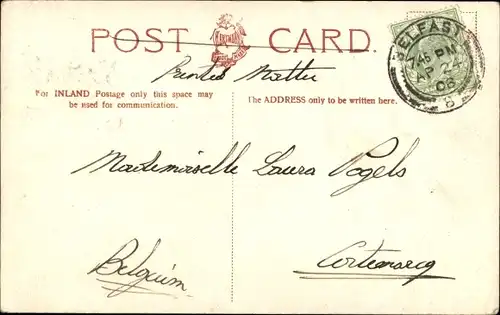 POST CARD.
Printed Matter
For INLAND Postage only this space may
be used for communication.
The ADDRESS only to be written here.
BELFAST
45 PM
AP 24
06
Mademoiselle Laura Pogels
Cortenaeg
Belgium